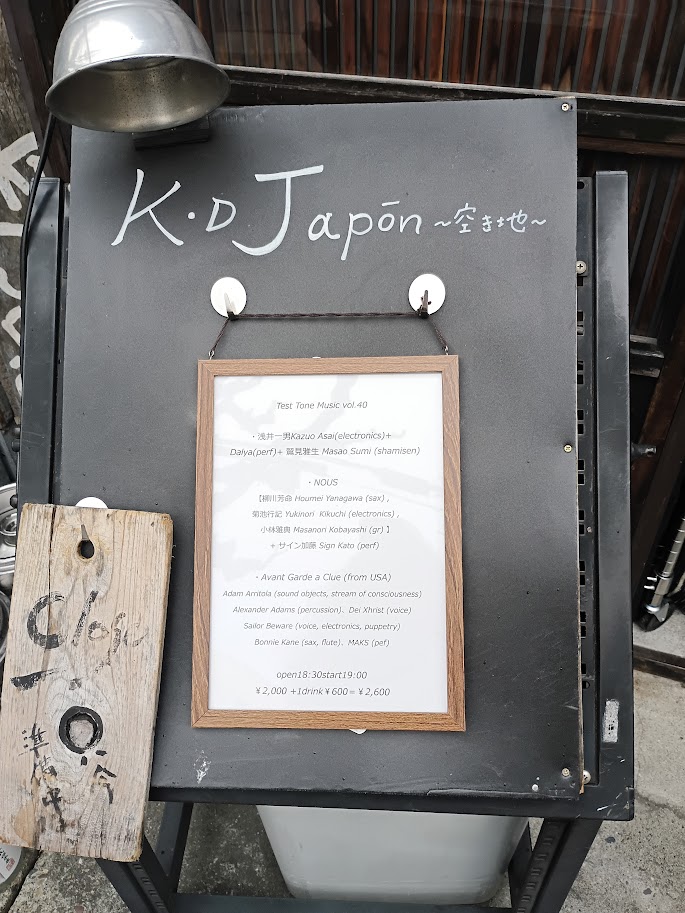 K・D Japōn ~空き地~
Test Tone Music vol.40
・浅井一男Kazuo Asai(electronics)+
Daiya(perf)+ 鷲見雅生 Masao Sumi (shamisen)
・NOUS
【柳川芳命 Houmei Yanagawa (sax) ,
菊池行記 Yukinori Kikuchi (electronics) ,
小林雅典 Masanori Kobayashi (gr) 】
+ サイン加藤 Sign Kato (perf)
・Avant Garde a Clue (from USA)
Adam Arritola (sound objects, stream of consciousness)
Alexander Adams (percussion)、Dei Xhrist (voice)
Sailor Beware (voice, electronics, puppetry)
Bonnie Kane (sax, flute)、MAKS (pef)
open18:30start19:00
￥2,000 +1drink￥600=￥2,600
Close
準備中